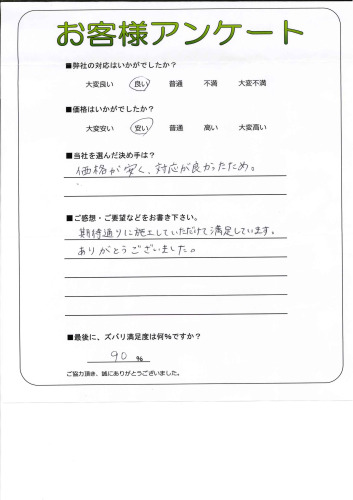 お客様アンケート
■弊社の対応はいかがでしたか？
大変良い 良い 普通 不満 大変不満
■価格はいかがでしたか？
大変安い 安い 普通 高い 大変高い
■当社を選んだ決め手は？
価格が安く、対応が良かったため。
■ご感想・ご要望などをお書き下さい。
期待通りに施工していただけて満足しています。
ありがとうございました。
■最後に、ズバリ満足度は何%ですか？
90 %
ご協力頂き、誠にありがとうございました。